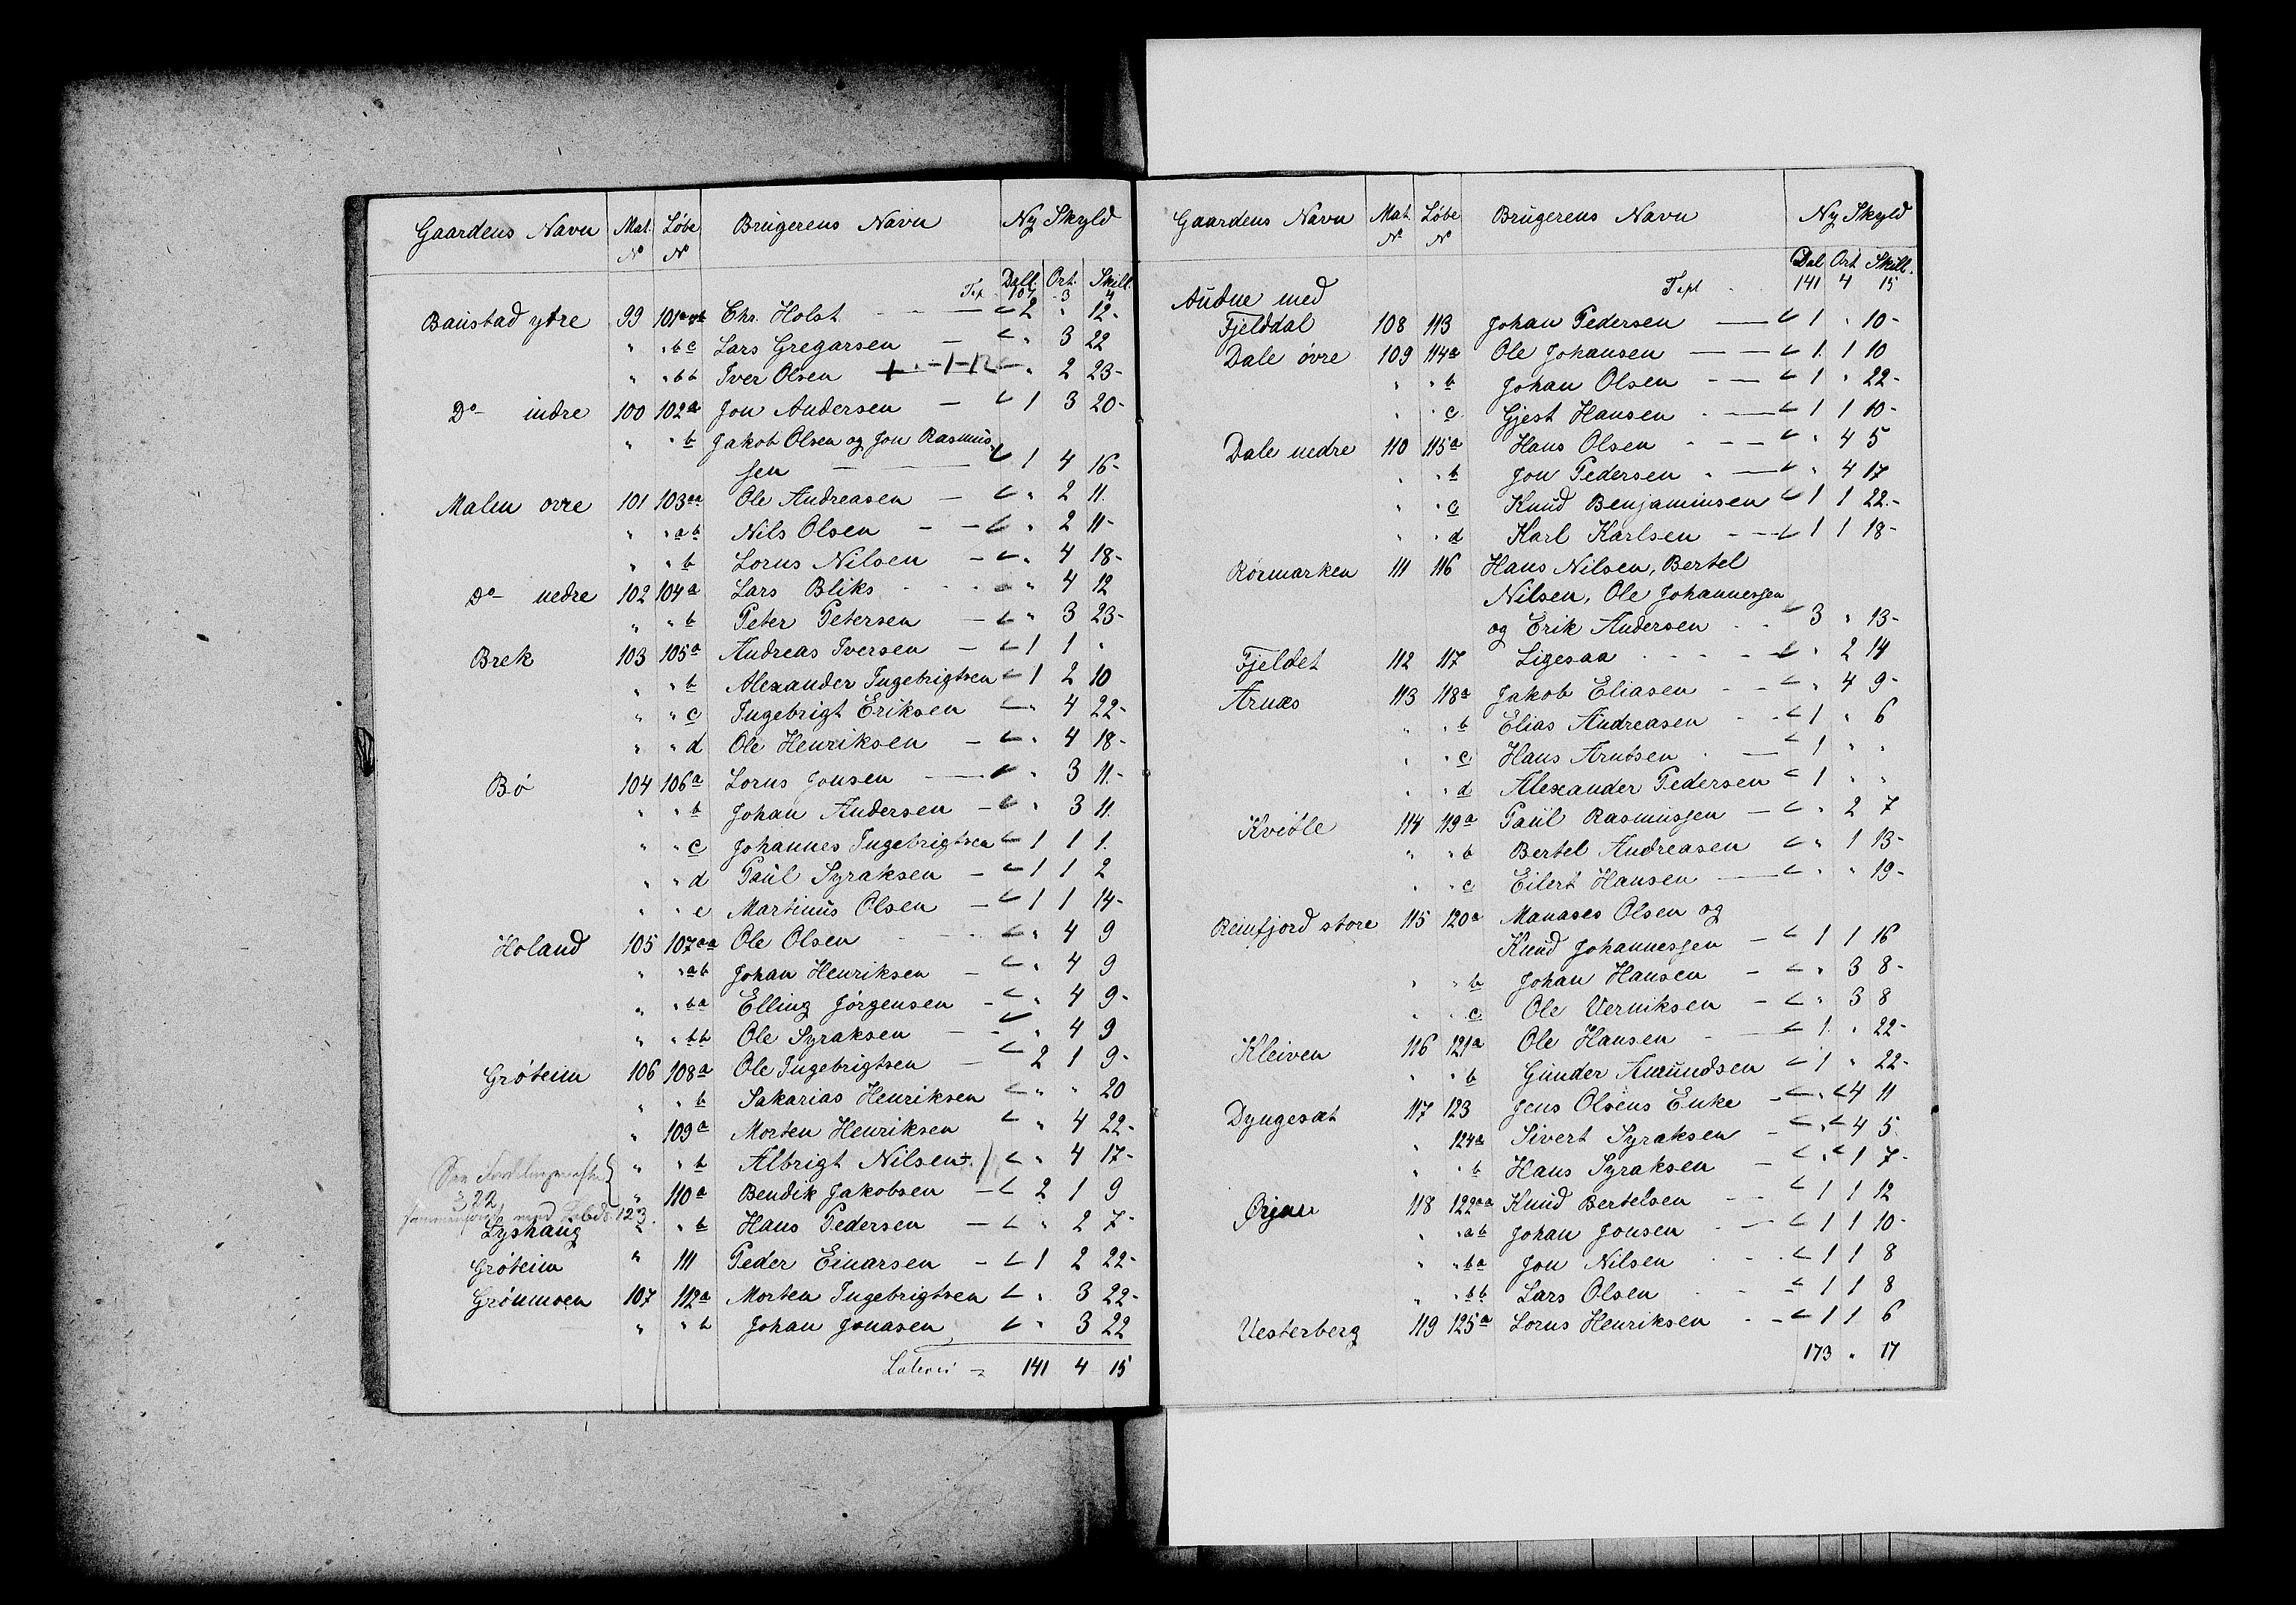 Gaardens Navn Mat. Løbe Brugerens Navn Ny Skyld
No No
Dall. Ort. Skill.
107 3 4
Baustad ytre 99 101 Chr. Holst 2 " 12-
" " b c Lars Gregarsen " 3 22
" " b b Iver Olsen " 2 23-
Do indre 100 102a Jon Andersen 1 3 20-
" " b Jakob Olsen og Jon Rasmus
sen 1 4 16-
Malen øvre 101 103aa Ole Andreasen " 2 11.
" " a b Nils Olsen " 2 11-
" " b Lorns Nilsen " 4 18-
Do nedre 102 104a Lars Bliks " 4 12
" " b Peter Petersen " 3 23-
Brek 103 105a Andreas Iversen 1 1 "
" " b Alexander Ingebrigtsen 1 2 10
" " c Ingebrigt Eriksen " 4 22-
" " d Ole Henriksen " 4 18-
Bø 104 106a Lorns Jonsen " 3 11-
" " b Johan Andersen " 3 11.
" " c Johannes Ingebrigtsen 1 1 1.
" " d Paul Syraksen 1 1 2
" " e Martinus Olsen 1 1 14-
Holand 105 107aa Ole Olsen " 4 9
" " a b Johan Henriksen " 4 9
" " b a Elling Jørgensen " 4 9-
" " b b Ole Syraksen " 4 9
Grøteim 106 108a Ole Ingebrigtsen 2 1 9-
" " b Sakarias Henriksen " " 20
" 109a Morten Henriksen " 4 22-
" " b Albrigt Nilsen " 4 17-
322 " 110a Bendik Jakobsen 2 1 9
med 123.
Lyshaug " " b Hans Pedersen " 2 7-
Grøteim " 111 Peder Einarsen 1 2 22-
Grønmoen 107 112a Morten Ingebrigtsen " 3 22-
" " b Johan Jonasen " 3 22
Lateris 141 4 15
Gaardens Navn Mat. Løbe Brugerens Navn Ny Skyld
No No
Dal Ort Skill.
Tspt 141 4 15
Audne med
Fjelddal 108 113 Johan Pedersen 1 " 10-
Dale øvre 109 114a Ole Johansen 1 1 10
" " b Johan Olsen 1 " 22-
" " c Gjest Hansen 1 1 10-
Dale nedre 110 115a Hans Olsen " 4 5
" " b Jon Pedersen " 4 17
" " c Knud Benjaminsen 1 1 22-
" " d Karl Karlsen 1 1 18-
Rørmarken 111 116 Hans Nilsen, Bertel
Nilsen, Ole Johannessen
og Erik Andersen 3 " 13-
Fjeldet 112 117 Ligesaa " 2 14
Arnæs 113 118a Jakob Eliasen " 4 9-
" " b Elias Andreasen 1 " 6
" " c Hans Arntsen 1 " "
" " d Alexander Pedersen 1 " "
Kvitle 114 119a Paul Rasmussen " 2 7
" " b Bertel Andreasen " 1 13-
" " c Eilert Hansen " " 19-
Reinfjord store 115 120a Manases Olsen og
Knud Johannessen 1 1 16
" " b Johan Hansen " 3 8-
" " c Ole Verniksen " 3 8
Kleiven 116 121a Ole Hansen 1 " 22-
" " b Gunder Amundsen 1 " 22-
Dyngesæt 117 123 Jens Olsens Enke " 4 11
" 124a Sivert Syraksen " 4 5
" " b Hans Syraksen " 1 7-
Ørjan 118 122aa Knud Bertelsen 1 1 12
" " a b Johan Jonsen 1 1 10-
" " b a Jon Nilsen 1 1 8
" " b b Lars Olsen 1 1 8
Vesterberg 119 125a Lorns Henriksen 1 1 6
173 " 17